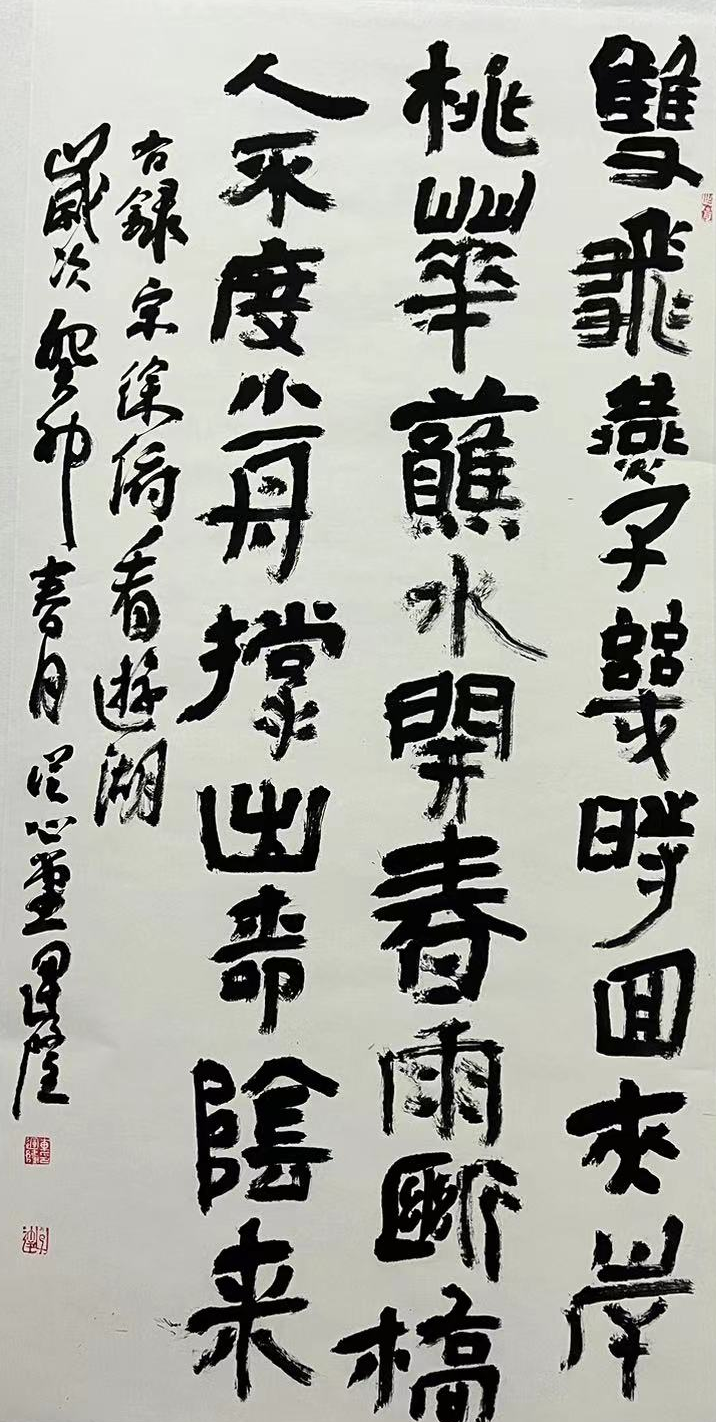 雙飛燕子幾時回夾岸
桃華蘸水開春雨斷橋
人不度小舟撐出柳陰来
右録宋徐俯春遊湖
歲次癸卯春月從心堂